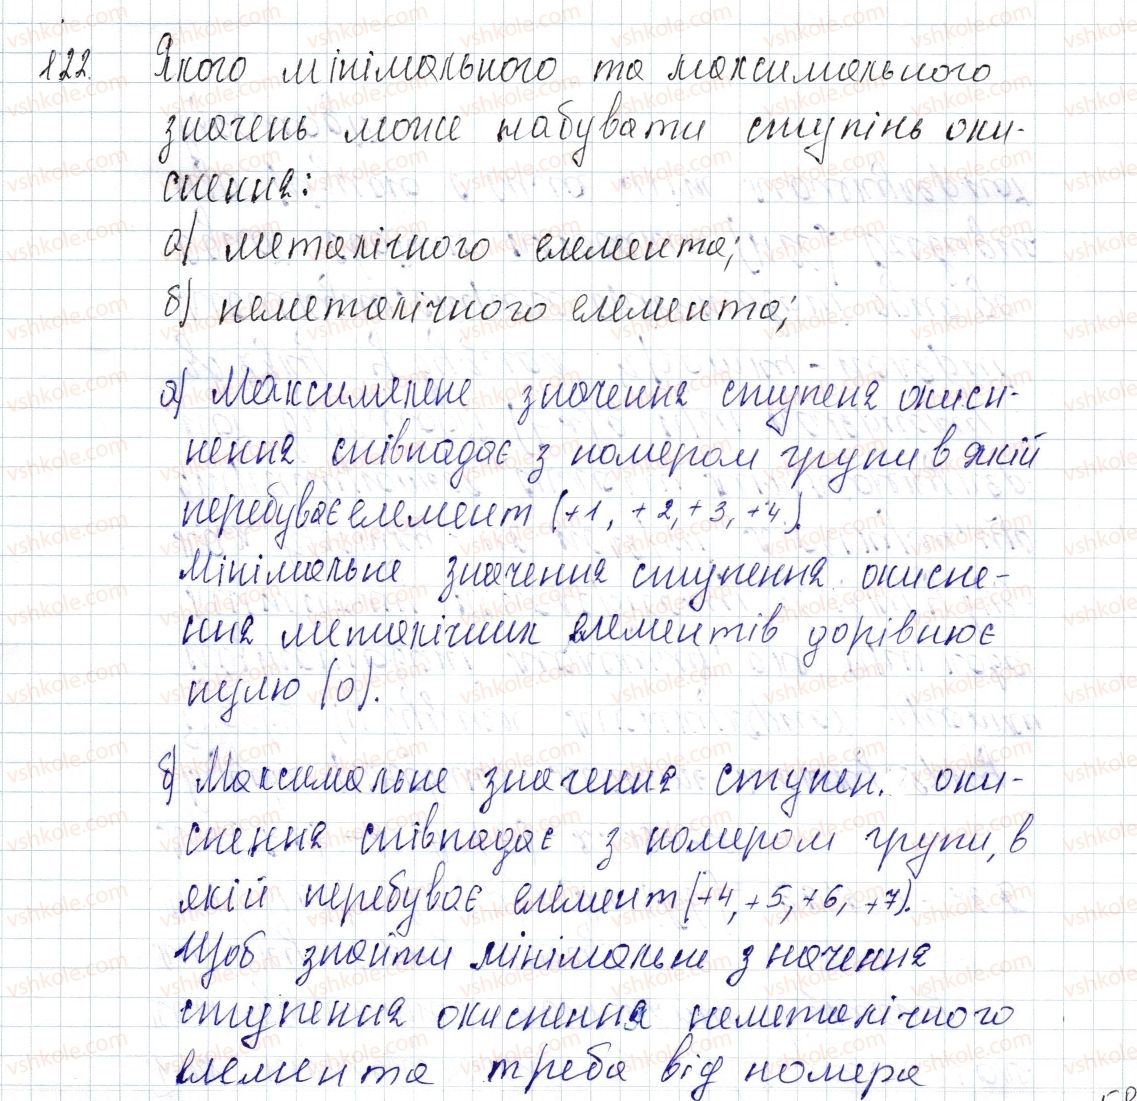 122. Якого мінімального та максимального
значень може набувати ступінь оки-
снення:
а) металічного елемента;
б) неметалічного елемента;
а) Максималене значення ступеня окисн-
нення співпадає з номером групи в якій
перебуває елемент (+1, +2, +3, +4).
Мінімальне значення ступення окисне-
ння металічних елементів дорівнює
нулю (0).
б) Максимальне значення ступен. оки-
снення співпадає з номером групи, в
якій перебуває елемент (+4, +5, +6, +7).
Щоб знайти мінімальне значення
ступення окиснення неметалічного
елемента треба від номера